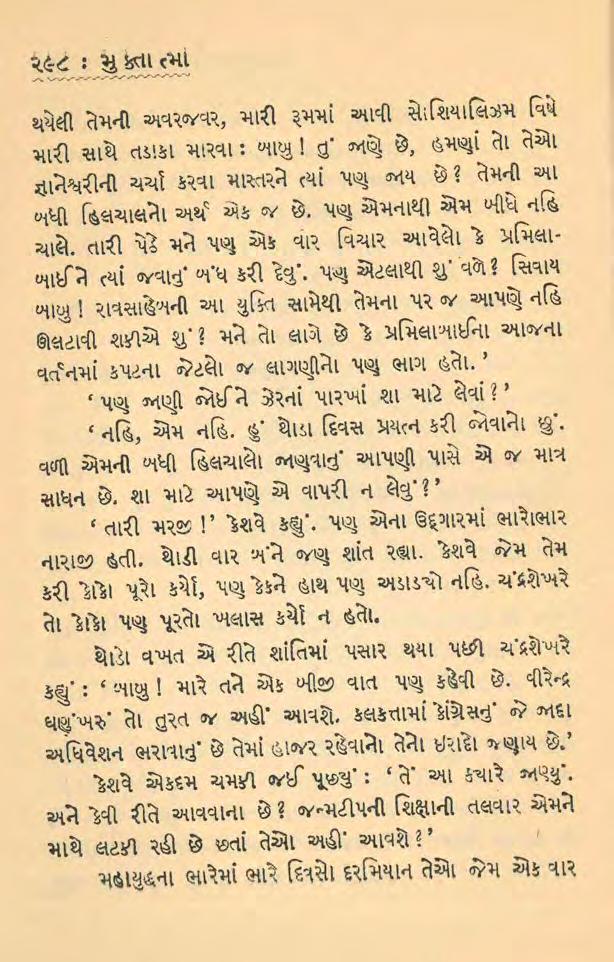 ૨૯૮ : મુક્તાત્મા
થયેલી તેમની અવરજવર, મારી રૂમમાં આવી સોશિયાલિઝમ વિષે
મારી સાથે તડાકા મારવા : બાબુ ! તું જાણે છે, હમણાં તો તેઓ
જ્ઞાનેશ્વરીની ચર્ચા કરવા માસ્તરને ત્યાં પણ જાય છે? તેમની આ
બધી હિલચાલનો અર્થ એક જ છે. પણ એમનાથી એમ બીધે નહિ
ચાલે. તારી પેઠે મને પણ એક વાર વિચાર આવેલો કે પ્રમિલા-
બાઈને ત્યાં જવાનું બંધ કરી દેવું. પણ એટલાથી શું વળે? સિવાય
બાબુ ! રાવસાહેબની આ યુક્તિ સામેથી તેમના પર જ આપણે નહિ
ઊલટાવી શકીએ શું? મને તો લાગે છે કે પ્રમિલાબાઈના આજના
વર્તનમાં કપટના જેટલો જ લાગણીનો પણ ભાગ હતો.’
‘પણ જાણી જોઈને ઝેરનાં પારખાં શા માટે લેવાં?’
‘નહિ, એમ નહિ. હું થોડા દિવસ પ્રયત્ન કરી જોવાનો છું.
વળી એમની બધી હિલચાલો જાણવાનું આપણી પાસે એ જ માત્ર
સાધન છે. શા માટે આપણે એ વાપરી ન લેવું?’
‘તારી મરજી !’ કેશવે કહ્યું. પણ એના ઉદ્ગારમાં ભારોભાર
નારાજી હતી. થોડી વાર બંને જણ શાંત રહ્યા. કેશવે જેમ તેમ
કરી કોકો પૂરો કર્યો, પણ કેકને હાથ પણ અડાડચો નહિ. ચંદ્રશેખરે
તો કોકો પણ પૂરતો ખલાસ કર્યો ન હતો.
થોડો વખત એ રીતે શાંતિમાં પસાર થયા પછી ચંદ્રશેખરે
કહ્યું : ‘બાબુ ! મારે તને એક બીજી વાત પણ કહેવી છે. વીરેન્દ્ર
ઘણુંખરું તો તુરત જ અહીં આવશે. કલકત્તામાં કોંગ્રેસનું જે જાદા
અધિવેશન ભરાવાનું છે તેમાં હાજર રહેવાનો તેનો ઇરાદો જણાય છે.’
કેશવે એકદમ ચમકી જઈ પૂછ્યું : ‘તેં આ કયારે જાણ્યું.
અને કેવી રીતે આવવાના છે? જન્મટીપની શિક્ષાની તલવાર એમને
માથે લટકી રહી છે છતાં તેઓ અહીં આવશે?’
મહાયુદ્ધના ભારેમાં ભારે દિવસો દરમિયાન તેઓ જેમ એક વાર